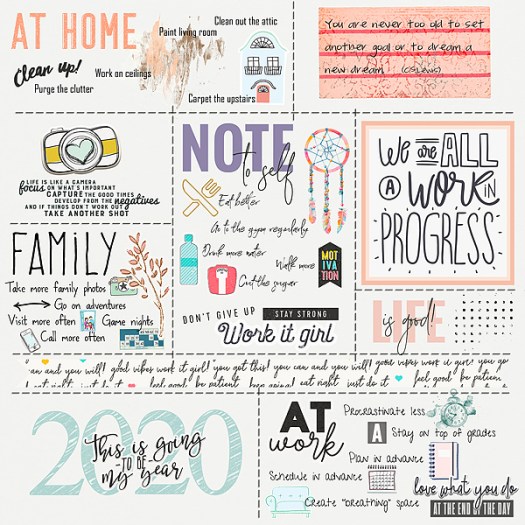 AT HOME
Clean out the attic
Paint living room
Clean up!
Work on ceilings
Purge the clutter
Carpet the upstairs
You are never too old to set
another goal or to dream a
new dream. (CS Lewis)
LIFE IS LIKE A CAMERA
focus ON WHAT'S IMPORTANT
CAPTURE THE GOOD TIMES
DEVELOP FROM THE negatives
AND IF THINGS DON'T WORK OUT
TAKE ANOTHER SHOT
NOTE
to self
Eat better
Go to the gym regularly
Drink more water
Walk more
Cut the sugar
MOT
IVA
TION
DON'T GIVE UP
STAY STRONG
Work it girl
We are ALL
A WORK IN
PROGRESS.
FAMILY
Take more family photos
Go on adventures
Visit more often
Game nights
Call more often
LIFE
is good!
can and you will! good vibes work it girl! you got this! you can and you will! good vibes work it girl! you go
eat right just do it feel good be patient keep going eat right just do it feel good be patient
2020
This is going
-TO BE-
my year
AT
work
Procrastinate less
A
Stay on top of grades
Plan in advance
Schedule in advance
Create "breathing" space
love what you do
AT THE END OF THE DAY